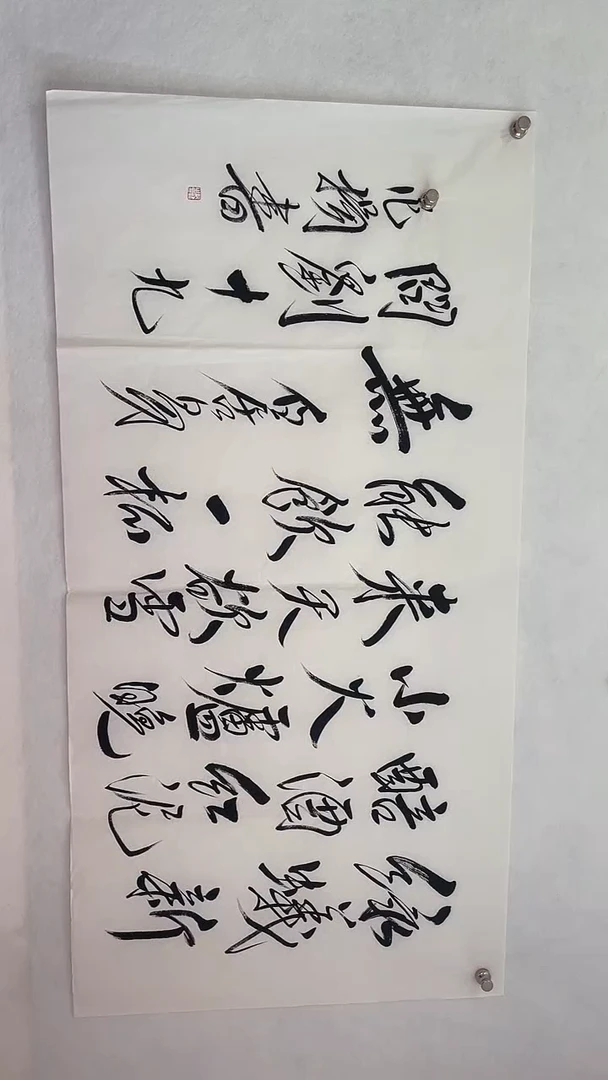 綠蟻新
醅酒紅泥
小火爐晚
來天欲雪
能飲一杯
無 白居易
問劉十九
書